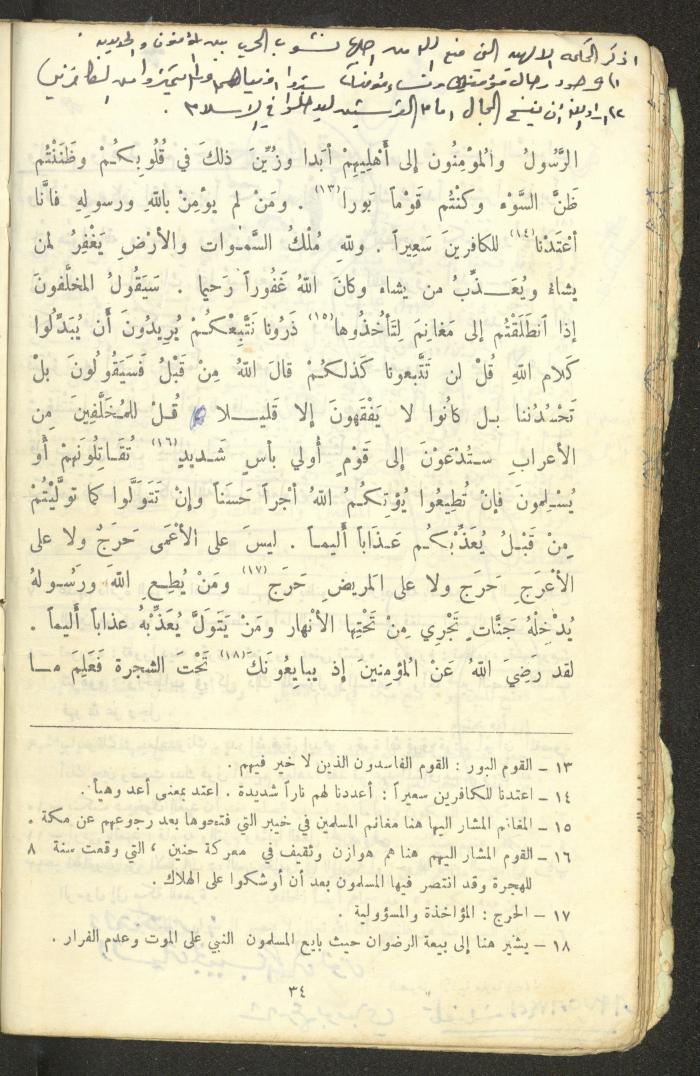 اذكر الحكمة الالهية التي منع الله من اجلها نشوب الحرب بين المؤمنون و
١) وجود رجال مؤمنين ونساء مؤمنات
٢) اراد الله أن يفسح المجال امام القرشيين ليدخلوا في الاسلام
الرَّسُولُ والمؤمِنُون إلى أَهْلِيهِمْ أبَدا وزُيِّنَ ذلكَ في قُلُوبِكُمْ وظَنَنْتُم
ظَنَّ السَّوْء وكنْتُم قَوْماً بَورا(١٣) . ومَنْ لم يؤمِنْ باللهِ ورسولِهِ فانَّا
أعْتَدْنا(١٤) للكافرينَ سَعِيراً . وللهِ مُلْكُ السَّموات والأرْضِ يَغْفِرُ لمن
يشاءُ ويُعَـذِّبُ من يشاء وكانَ اللهُ غَفُوراً رَحيما . سَيَقُولُ المخلَّفونَ
إذا أنطَلَقْتُم إلى مَغانِمَ لِتَأخُذُوها(١٥) ذَرُونا نَتَّبِعْكُـمْ يُرِيدُونَ أَن يُبَدِّلُوا
كَلام اللهِ قُلْ لن تَتَّبعونا كَذلكُمْ قالَ اللهُ مِنْ قَبْلُ فَسَيَقُولُونَ بلْ
تَحْسُدُننا بـل كانُوا لا يَفْقَهونَ إلا قَليـلا قُـلْ للمُخَلَّفِينَ مِن
الأعراب سـتُدْعَوْنَ إلى قَوْمٍ أُولي بأسٍ شَـديدٍ(١٦) تُقَـاتِلُونَهمْ أَو
يُسْلِمونَ فإنْ تُطِيعُوا يُؤتِكُمُ اللهُ أجْراً حَسَناً وإنْ تَتَوَلَّوا كما تولَّيْتُمْ
مِنْ قَبْـلُ يُعَذِّبْكُـم عَـذَاباً أَليمـاً . ليسَ على الأعْمَى حَرَجٌ ولا على
الأعْرَجِ حَرَجٌ ولا على المَريضِ حَرَج(١٧) ومَنْ يُطِـعِ اللهَ ورَسُـولهُ
يُدْخِلْهُ جَنَّاتٍ تَجْرِي مِنْ تَحْتِها الأنْهار ومَنْ يَتَوَلَّ يُعَذِّبْهُ عذاباً أليماً .
لقد رَضِيَ اللهُ عَنْ المُؤمِنينَ إذ يبايعُونَكَ(١٨) تَحْتَ الشجرة فَعَلِمَ مـا
١٣ – القوم البور : القوم الفاسدون الذين لا خير فيهم .
١٤ – اعتدنا للكافرين سعيراً : أعددنا لهم ناراً شديدة . اعتد بمعنى أعد وهيأ .
١٥ – المغانم المشار اليها هنا مغانم المسلمين في خيبر التي فتحوها بعد رجوعهم عن مكة .
١٦ – القوم المشار اليهم هنا هم هوازن وثقيف في معركة حنين ، التي وقعت سنة ٨
للهجرة وقد انتصر فيها المسلمون بعد أن أوشكوا على الهلاك .
١٧ – الحرج : المؤاخذة والمسؤولية .
١٨ – يشير هنا إلى بيعة الرضوان حيث بايع المسلمون النبي على الموت وعدم الفرار .
٣٤